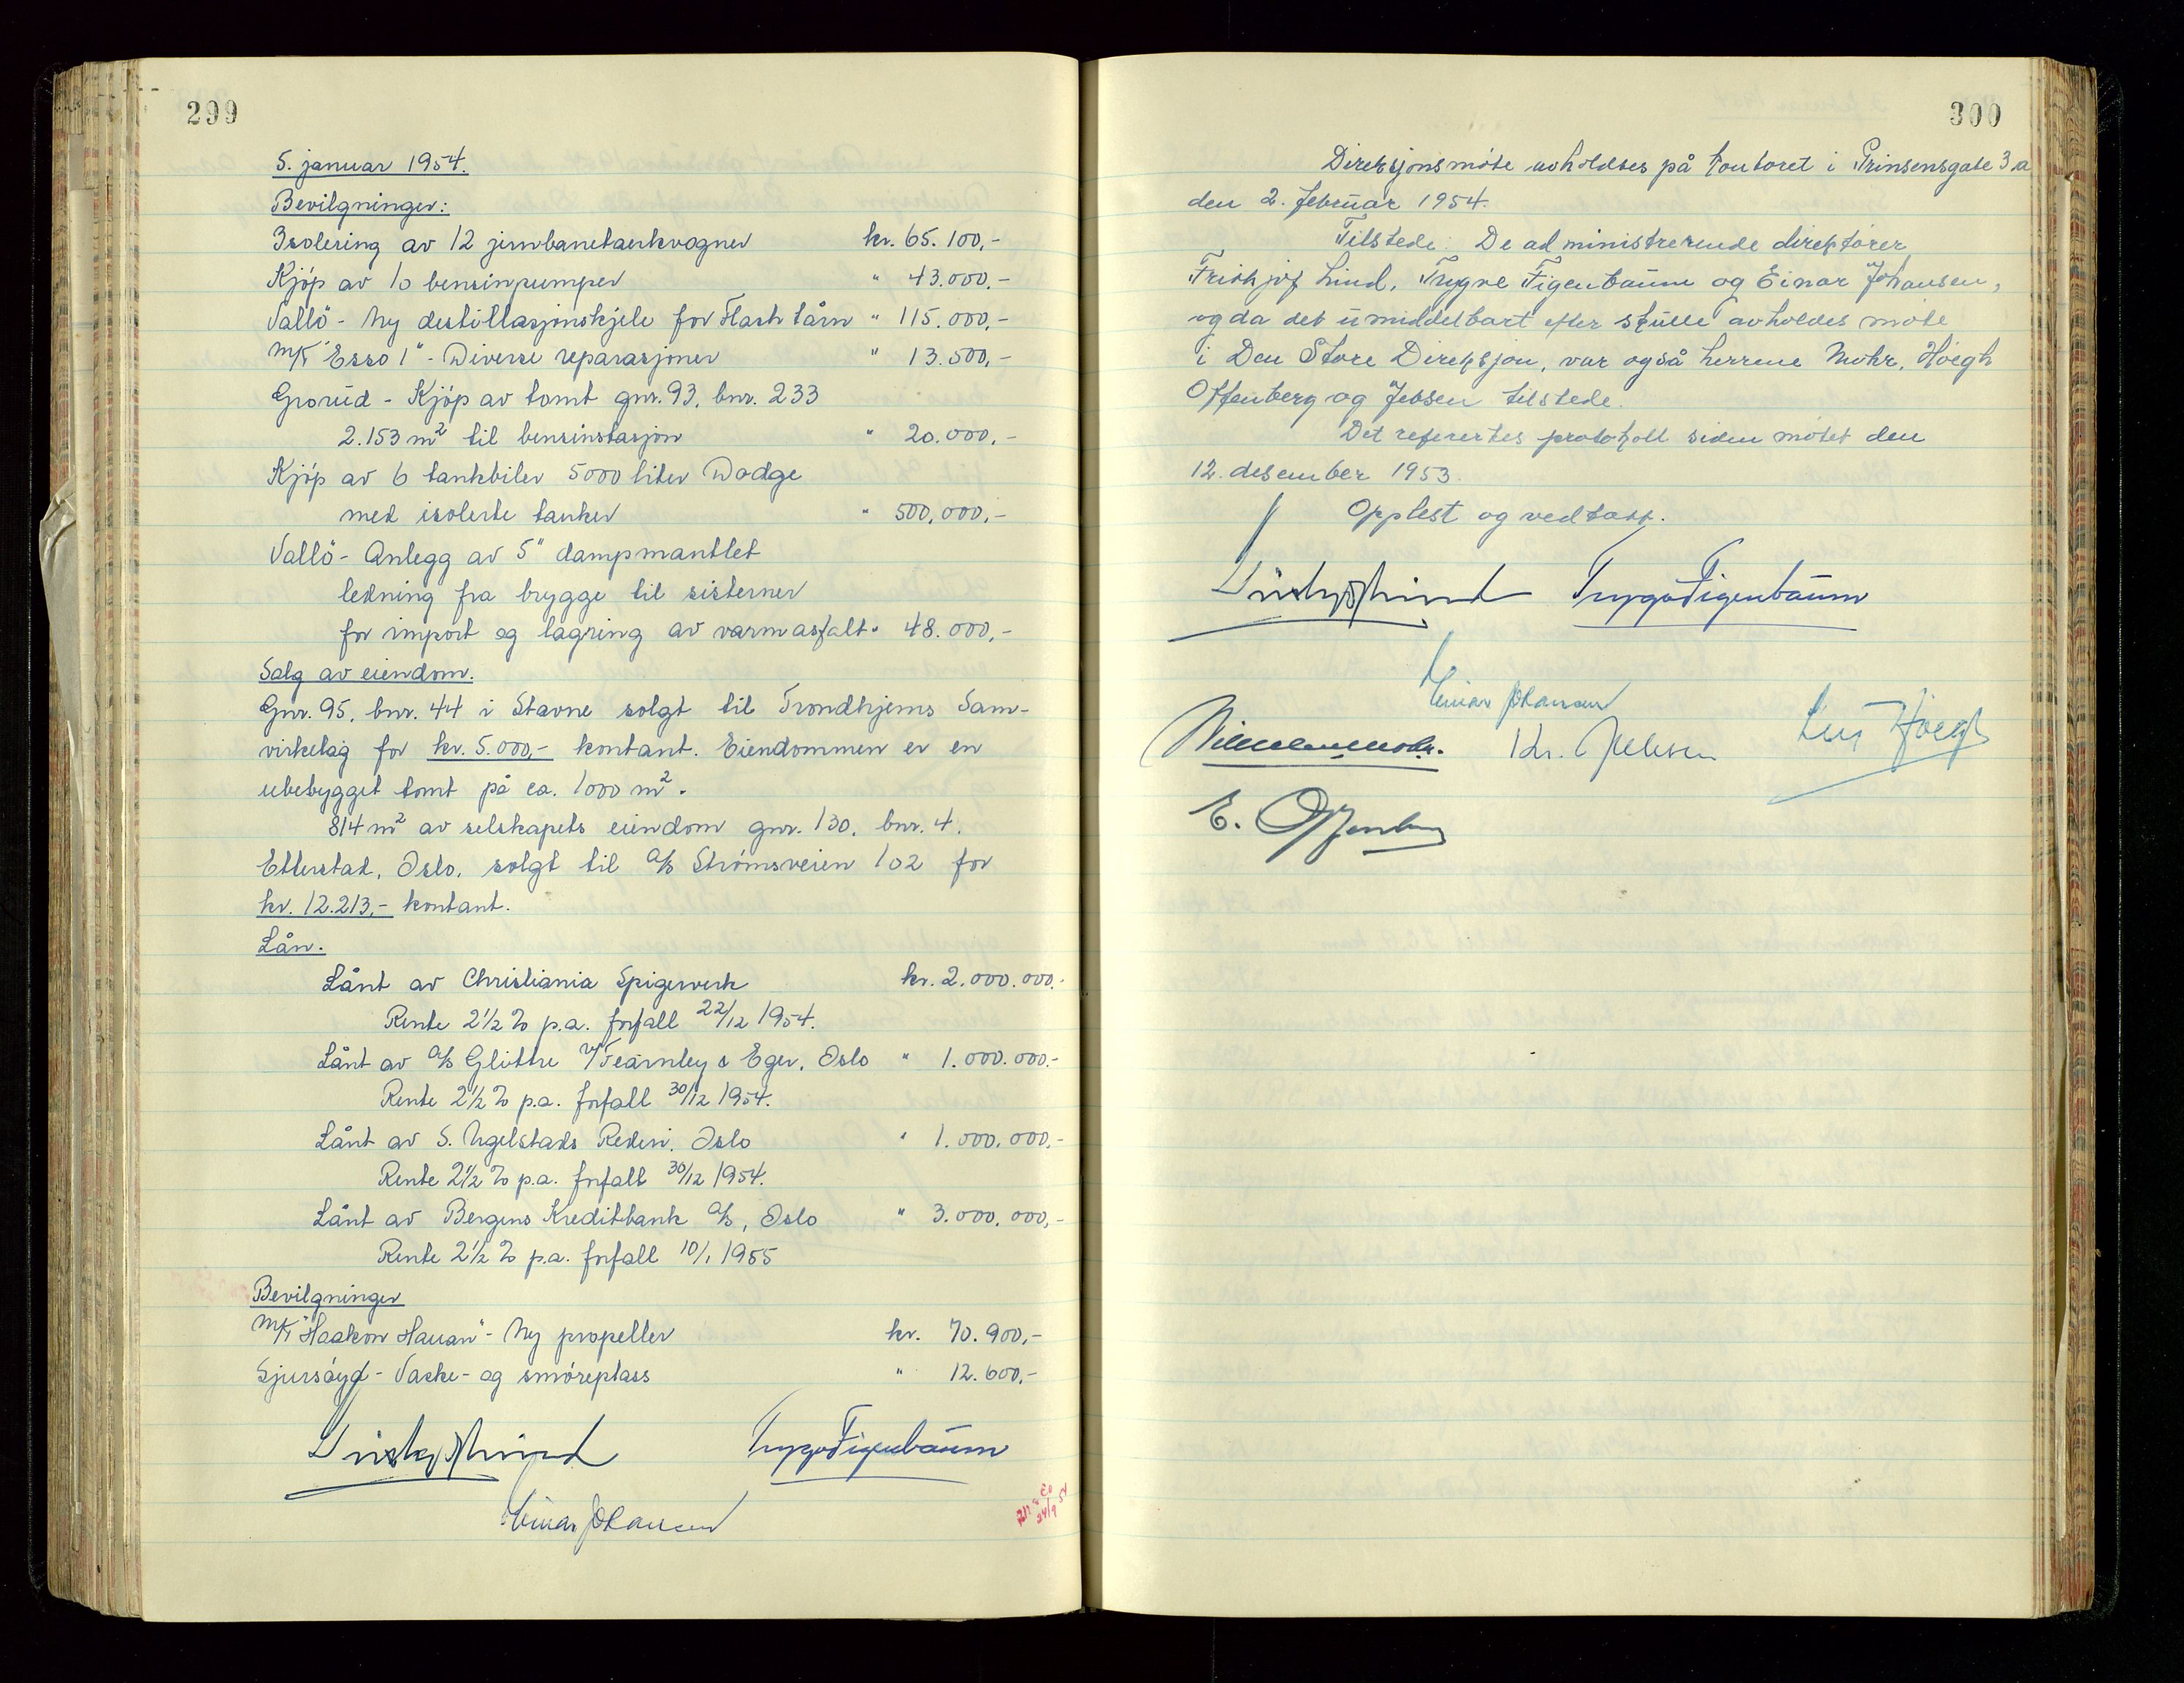 299
5. januar 1954.
Bevilgninger:
Isolering av 12 jernbanetankvogner kr. 65.100,-
Kjöp av 10 bensinpumper " 43.000,-
Vallö - Ny destillasjonskjele for Flash tårn " 115.000,-
M/T "Esso 1" - Diverse reparasjoner " 13.500,-
Grorud - Kjöp av tomt gnr. 93, bnr. 233
2.153 m² til bensinstasjon " 20.000,-
Kjöp av 6 tankbiler 5000 liter Dodge
med isolerte tanker " 500.000,-
Vallö - Anlegg av 5" dampmantlet
ledning fra brygge til sisterner
for import og lagring av varmasfalt " 48.000,-
Salg av eiendom.
Gnr. 95, bnr. 44 i Stavne solgt til Trondhjems Sam-
virkelag for kr. 5.000,- kontant. Eiendommen er en
ubebygget tomt på ca. 1000 m².
814 m² av selskapets eiendom gnr. 130, bnr. 4,
Etterstad, Oslo, solgt til A/S Strömsveien 102 for
kr. 12.213,- kontant.
Lån.
Lånt av Christiania Spigerverk kr. 2.000.000.-
Rente 2½ % p.a. forfall 22/12 1954.
Lånt av A/S Glittre v/Fearnley & Eger, Oslo " 1.000.000.-
Rente 2½ % p.a. forfall 30/12 1954.
Lånt av S. Ugelstads Rederi, Oslo " 1.000.000,-
Rente 2½ % p.a. forfall 30/12 1954.
Lånt av Bergens Kreditbank A/S, Oslo " 3.000.000,-
Rente 2½ % p.a. forfall 10/1 1955
Bevilgninger
M/T "Haakon Hauan" - Ny propeller kr. 70.900,-
Sjursöya - Vaske- og smöreplass " 12.600,-
Fridtjof Lind Trygve Figenbaum
Einar Johansen
24/9 54
300
Direksjonsmöte avholdtes på kontoret i Prinsensgate 3a
den 2. februar 1954.
Tilstede: De administrerende direktörer
Frithjof Lind, Trygve Figenbaum og Einar Johansen,
og da det umiddelbart efter skulle avholdes möte
i Den Store Direksjon, var også herrene Mohr, Höegh
Offenberg og Jebsen tilstede.
Det referertes protokoll siden mötet den
12. desember 1953.
Opplest og vedtatt.
Fridtjof Lind Trygve Figenbaum
Einar Johansen
Wilhelm Mohr. Kr. Jebsen Leif Höegh
E. Offenberg